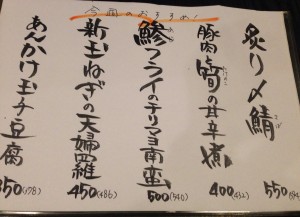 今週のおすすめ!
炙り〆鯖 550
豚肉と筍の甘辛煮 400(432)
鯵フライのチリマヨ南蛮 500(540)
新玉ねぎの天婦羅 450(486)
あんかけ玉子豆腐 350(378)